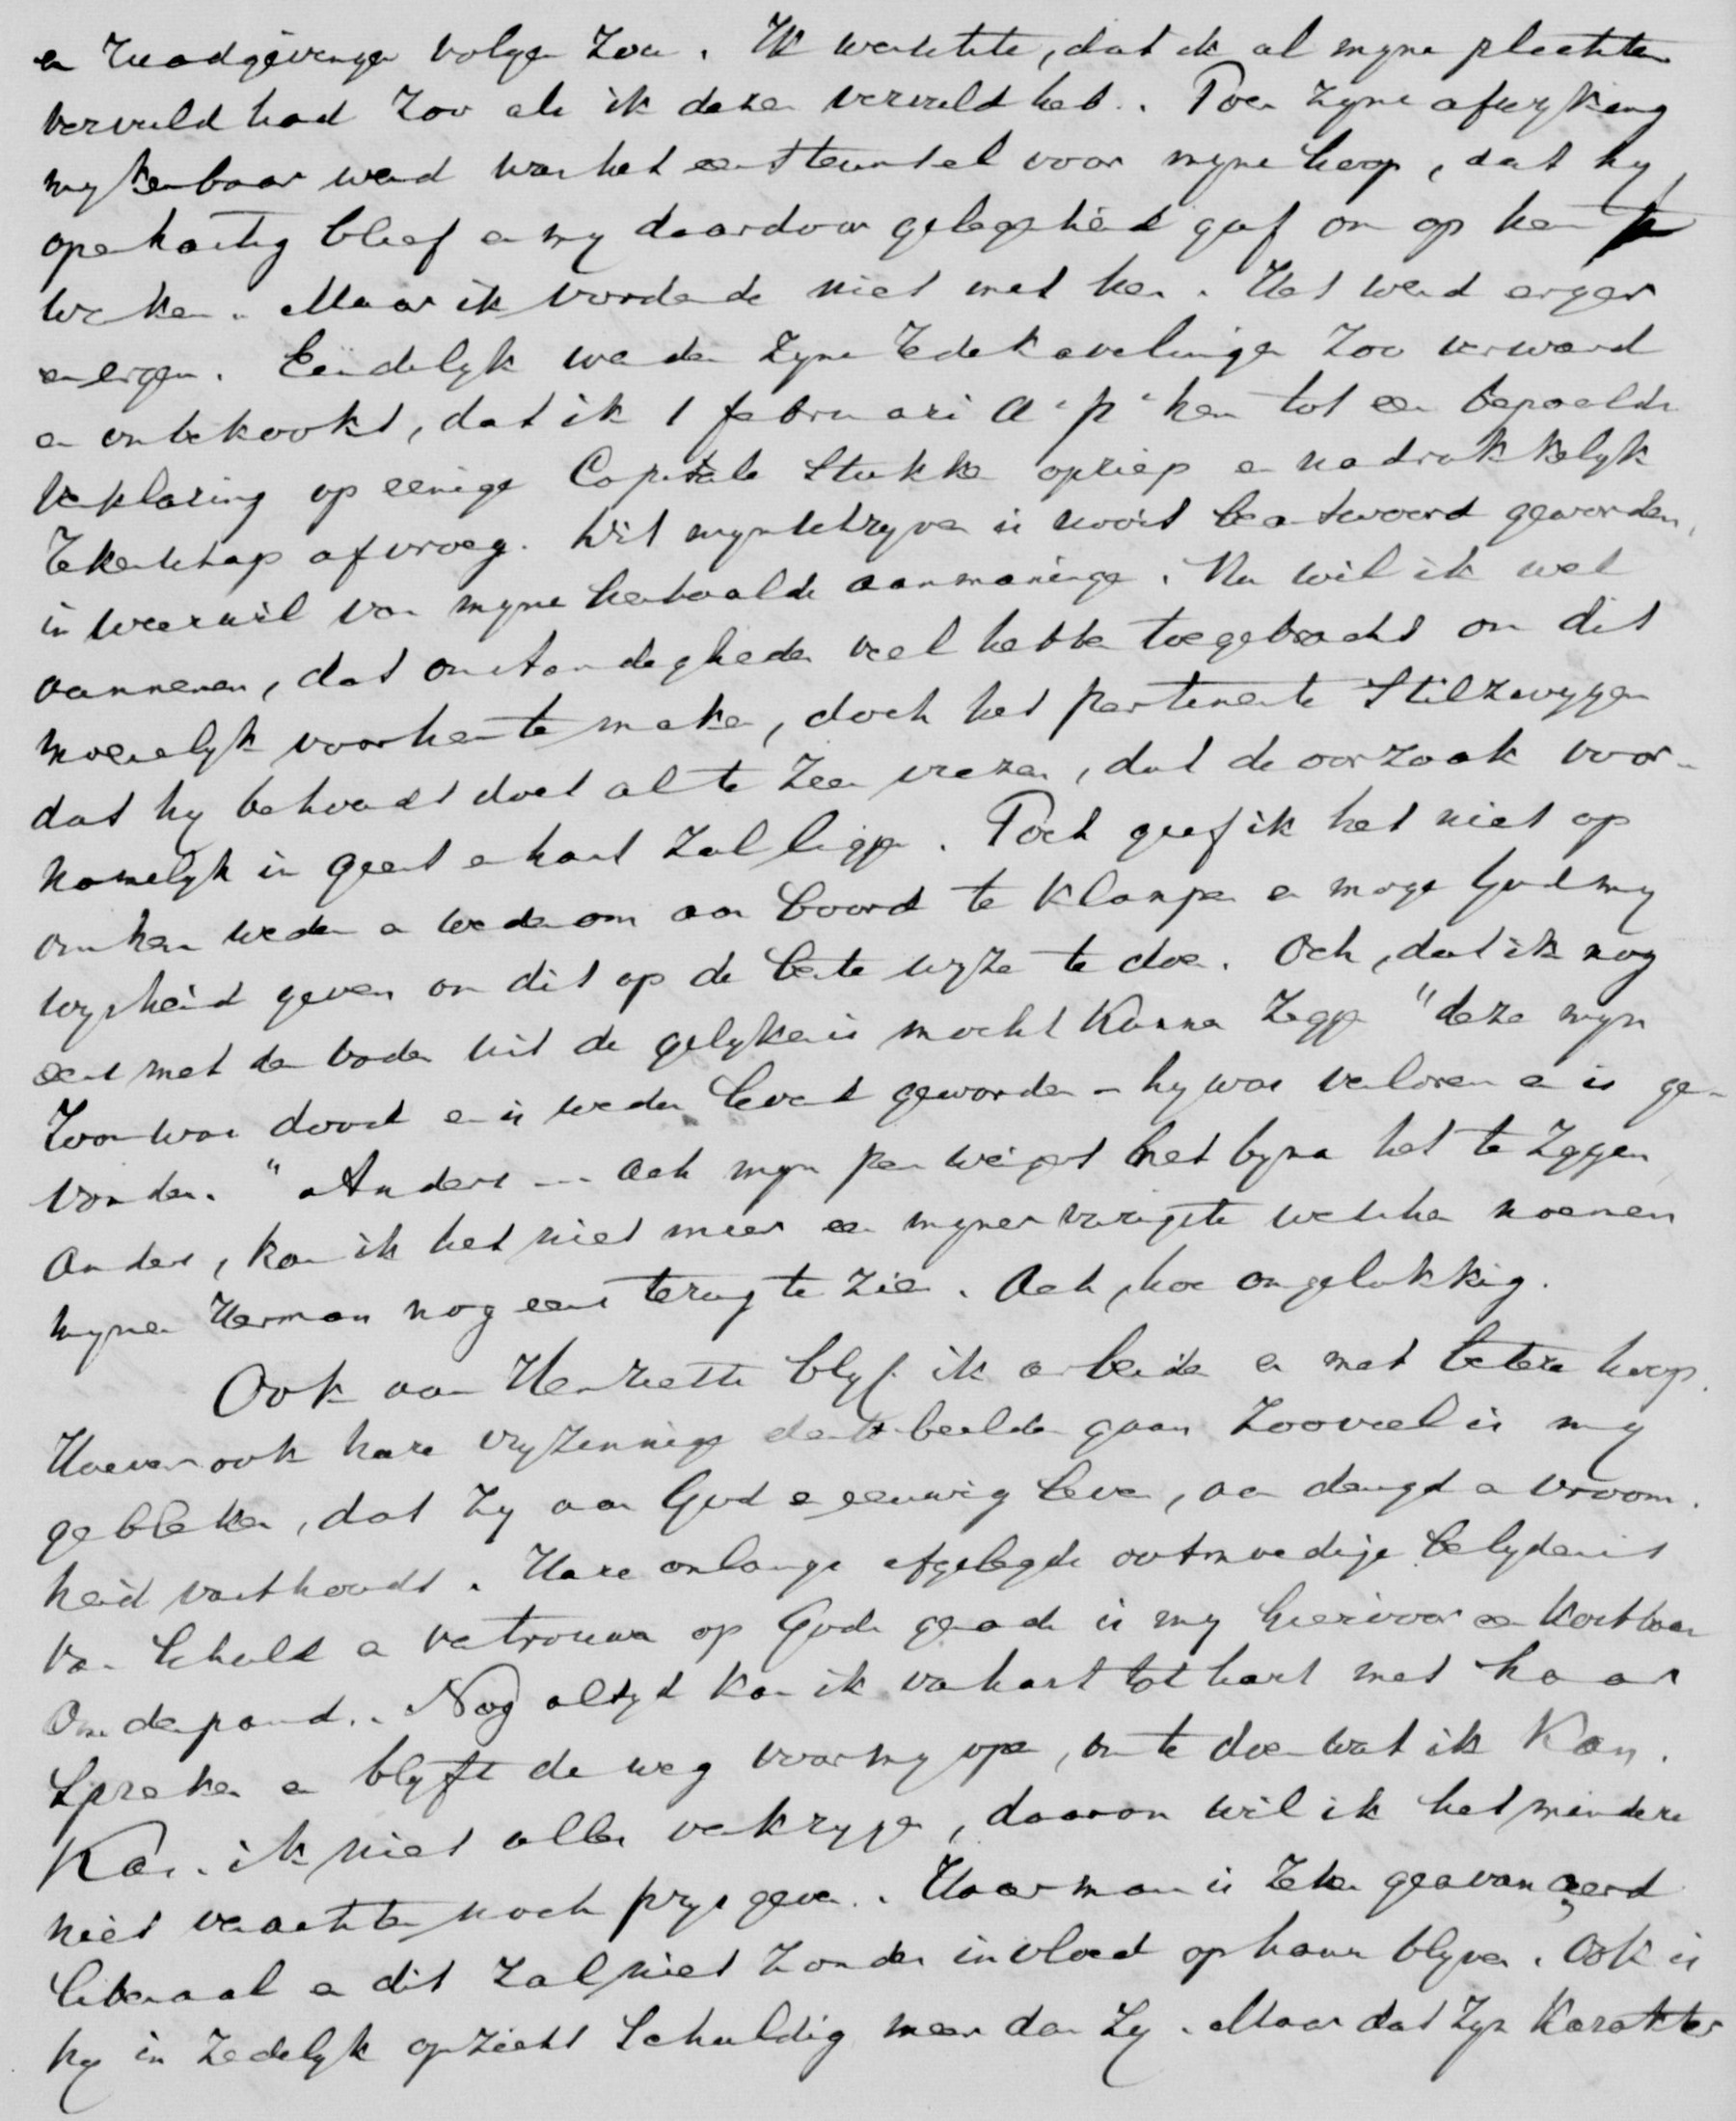 en raadgevingen volgen zou. Ik wenschte, dat ik al myne plechten
vervuld had zoo als ik dezen vervuld heb. Toen zyne afwyking
my kenbaar werd was het een steunsel voor myne hoop, dat hy
openhartig bleef en my daardoor gelegenheid gaf om op hem te
werken. Maar ik vorderde niet met hem. Het werd erger
en erger. Eindelyk werden zyne redekavelingen zoo verward
en onbekookt, dat ik 1 februari a.p. hem tot een bepaalde
verklaring op eenige Capitale stukken opriep en nadrukkelyk
rekenschap afvroeg. Dit mynschryven is nooit beantwoord geworden,
in weerwil van myne herhaalde aanmaningen. Nu wil ik wel
aannemen, dat omstandigheden veel hebben toegebracht om dit
moeielyk voor hem te maken, doch het pertinente stilzwygen
dat hy behoudt doet al te zeer vrezen, dat de oorzaak voor-
namelyk in geest en hart zal liggen. Toch geef ik het niet op
om hem weder en wederom aan boord te klampen en moge God my
wysheid geven om dit op de beste wyze te doen. Och, dat ik nog
eens met den vader uit de gelykenis mocht kunnen zeggen "deze myn
zoon was dood en is weder levend geworden - hy was verloren en is ge-
vonden." Anders -- Ach myn pen weigert het byna het te zeggen
anders, kan ik het niet meer een myner vurigste wenschen noemen
mynen Herman nog eens terug te zien. Ach, hoe ongelukkig.
Ook aan Henriette blyf ik arbeiden en met betere hoop.
Hoever ook hare vryzinnige denkbeelden gaan zooveel is my
gebleken, dat zy aan God en eeuwig leven, aan deugd en vroom-
heid vasthoudt. Hare onlangs afgelegde ootmoedige belydenis
van schuld en vertrouwen op Gods genade is my hiervoor een kostbaar
onderpand. Nog altyd kan ik van hart tot hart met haar
spreken en blyft de weg voor my open, om te doen wat ik kan.
Kan ik niet alles verkrygen, daarom wil ik het mindere
niet verachten noch prysgeven. Haar man is zeker geavanceerd
liberaal en dit zal niet zonder invloed op haar blyven. Ook is
hy in zedelyk opzicht schuldig meer dan zy. Maar dat zyn karakter